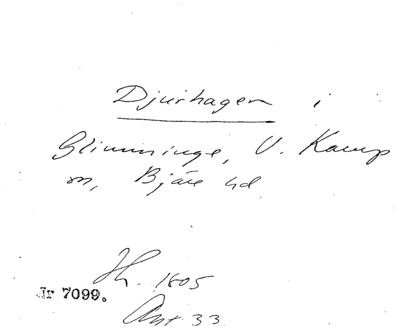 Djurhagen i
Glimminge, V. Karup
sn, Bjäre hd
Jr 7099.
1805
Akt 33